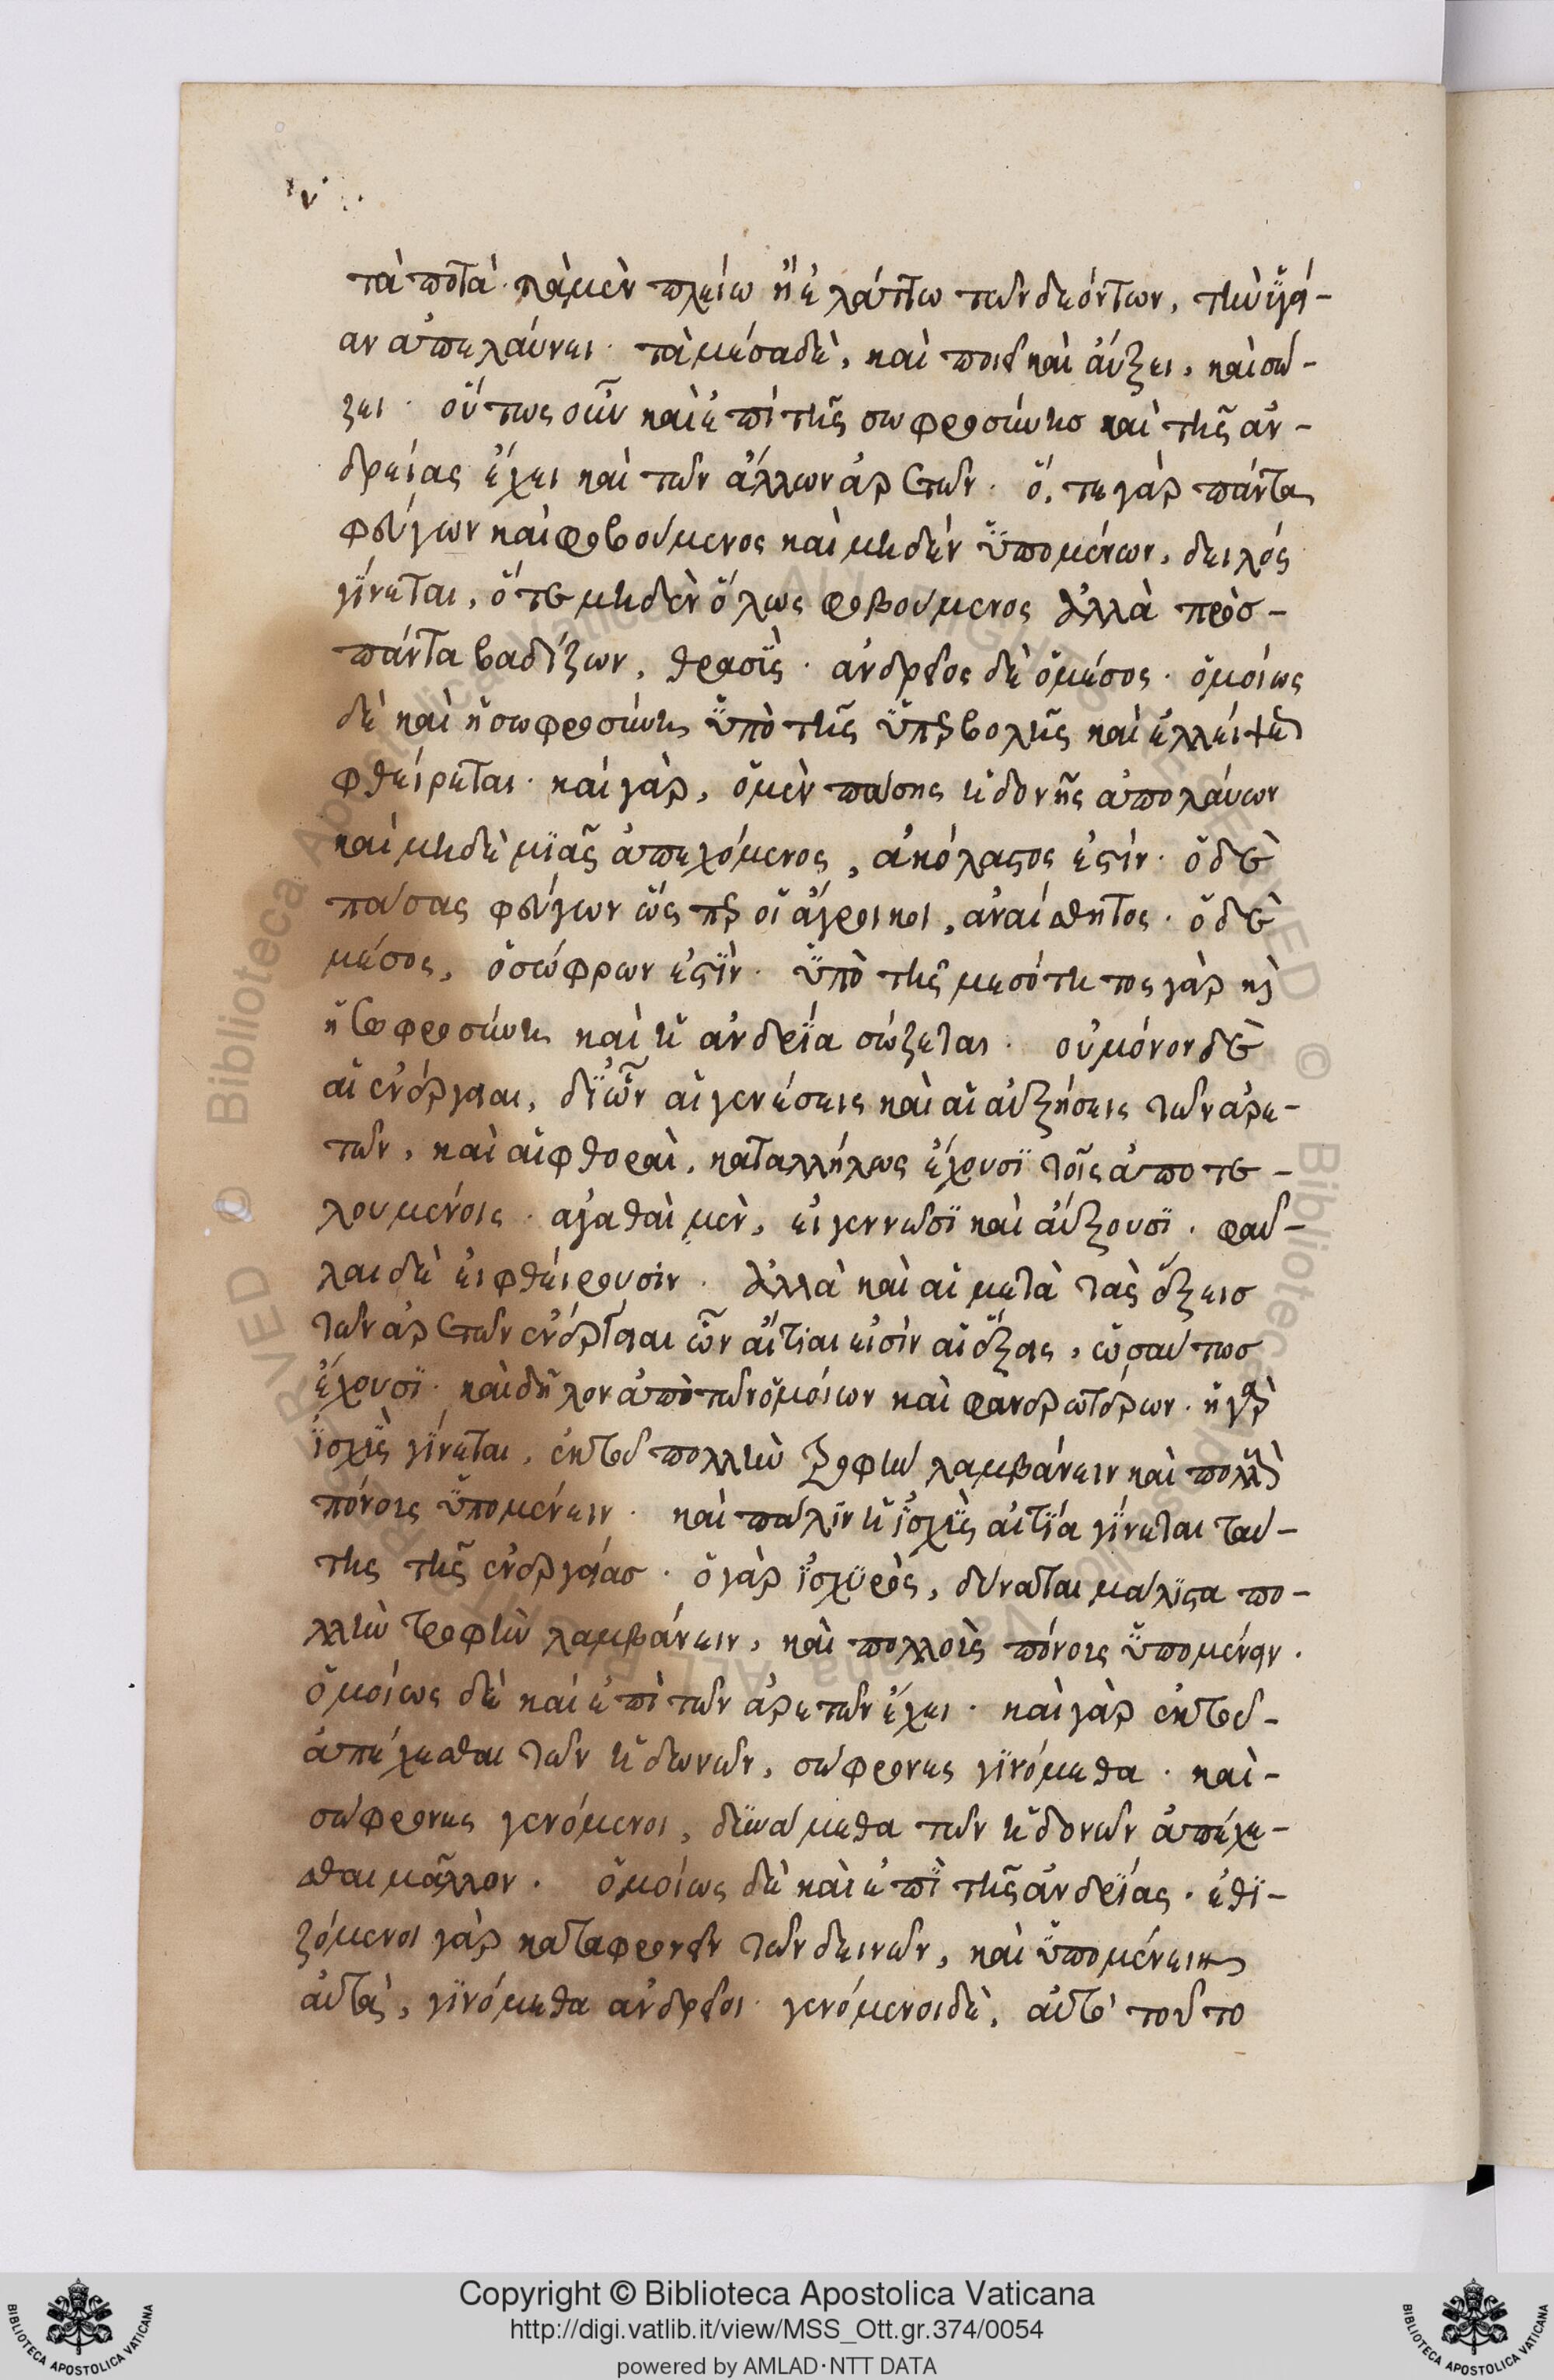 τὰ ποτὰ· τὰ μὲν πλείω ἢ ἐλάττω τῶν δεόντων, τὴν ὑγεί-
αν ἀπελάυνει· τὰ μέσα δὲ, καὶ ποιεῖ καὶ ἄυξει, καὶ σώ-
ζει· οὕτως οὖν καὶ ἐπὶ τῆς σωφροσύνης καὶ τῆς ἀν-
δρείας ἔχει καὶ τῶν ἄλλων ἀρετῶν· ὅ, τε γὰρ πάντα
φεύγων καὶ φοβούμενος καὶ μηδὲν ὑπομένων, δειλός
γίνεται, ὅ τε μηδὲν ὅλως φοβούμενος ἀλλὰ πρὸσ-
πάντα βαδίζων, θρασὺς· ἀνδρεῖος δὲ ὁ μέσος· ὁμοίως
δὲ καὶ ἡ σωφροσύνη ὑπὸ τῆς ὑπερβολῆς καὶ ἐλλείψεως
φθείρεται· καὶ γὰρ, ὁ μὲν πάσης ἡδονῆς ἀπολάυων
καὶ μηδὲ μϊᾶς ἀπεχόμενος, ἀκόλαστος ἐστίν· ὁ δὲ
πάσας φεύγων ὥς περ οἱ ἄγροικοι, ἀναίσθητος· ὁ δὲ
μέσος, ὁ σώφρων ἐστϊν· ὑπὸ τῆς μεσότητος γὰρ καὶ
ἡ σωφροσύνη καὶ ἡ ἀνδρϊία σώζεται· οὐ μόνον δὲ
αἱ ἐνέργειαι, δϊ ὧν αἱ γενέσεις καὶ αἱ αὐξήσεις τῶν ἀρε-
τῶν, καὶ αἱ φθοραὶ, καταλλήλως ἔχουσϊ τοῖς ἀποτε-
λουμένοις· αγαθαὶ μὲν, εἰ γεννωσϊ καὶ ἄυξουσϊ· φαῦ-
λαι δὲ εἰ φθείρουσιν· ἀλλὰ καὶ αἱ μετὰ τὰς ἕξεις
τῶν ἀρετῶν ἐνέργειαι ὧν ἄιτϊαι εἰσὶν αἱ ἕξεις, ὡσαύτως
ἔχουσϊ· καὶ δῆλον ἀπὸ τῶν ὁμοίων καὶ φανερωτέρων· ἡ γὰρ
ϊσχὺς γϊνεται, ἐκ τοῦ πολλὴν τροφὴν λαμβάνειν καὶ πολλοῖς
πόνοις ὑπομένειν· καὶ πάλϊν ἡ ϊσχὺς αἰτϊα γϊνεται ταύ-
της τῆς ἐνεργείας· ὁ γὰρ ϊσχϋρὸς, δύναται μάλϊστα πο-
λλὴν τροφὴν λαμβάνειν, καὶ πολλοῖς πόνοις ὑπομένειν·
ὁμοίως δὲ καὶ ἐπὶ τῶν ἀρετῶν ἔχει· καὶ γὰρ ἐκ τοῦ-
ἀπέχεσθαι τῶν ἡδωνῶν, σώφρονες γϊνόμεθα· καὶ-
σώφρονες γενόμενοι, δϋνάμεθα τῶν ἡδονῶν ἀπέχε-
σθαι μᾶλλον· ὁμοίως δὲ καὶ ἐπὶ τῆς ἀνδρϊας· ἐθϊ-
ζόμενοι γὰρ καταφρονεῖν τῶν δεινῶν, καὶ ὑπομένειν
αὐτὰ, γϊνόμεθα ἀνδρεῖοι· γενόμενοι δὲ, αὐτὸ τοῦτο
Copyright © Biblioteca Apostolica Vaticana
http://digi.vatlib.it/view/MSS_Ott.gr.374/0054
powered by AMLAD·NTT DATA
BIBLIOTECA APOSTOLICA VATICANA
BIBLIOTECA APOSTOLICA VATICANA